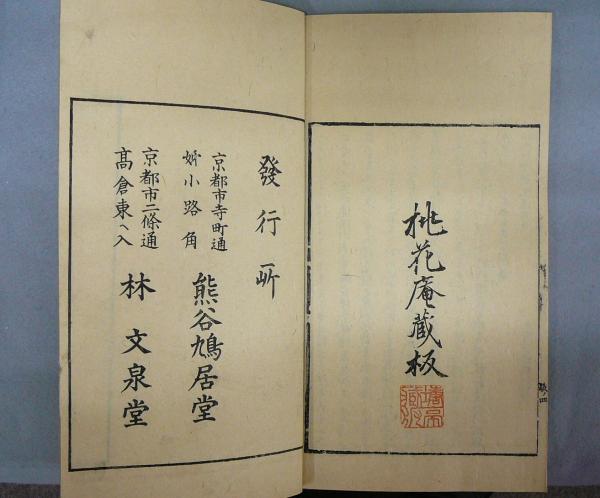 桃花庵蔵板
發行所
京都市寺町通
姉小路角
熊谷鳩居堂
京都市二條通
髙倉東ヘ入
林文泉堂